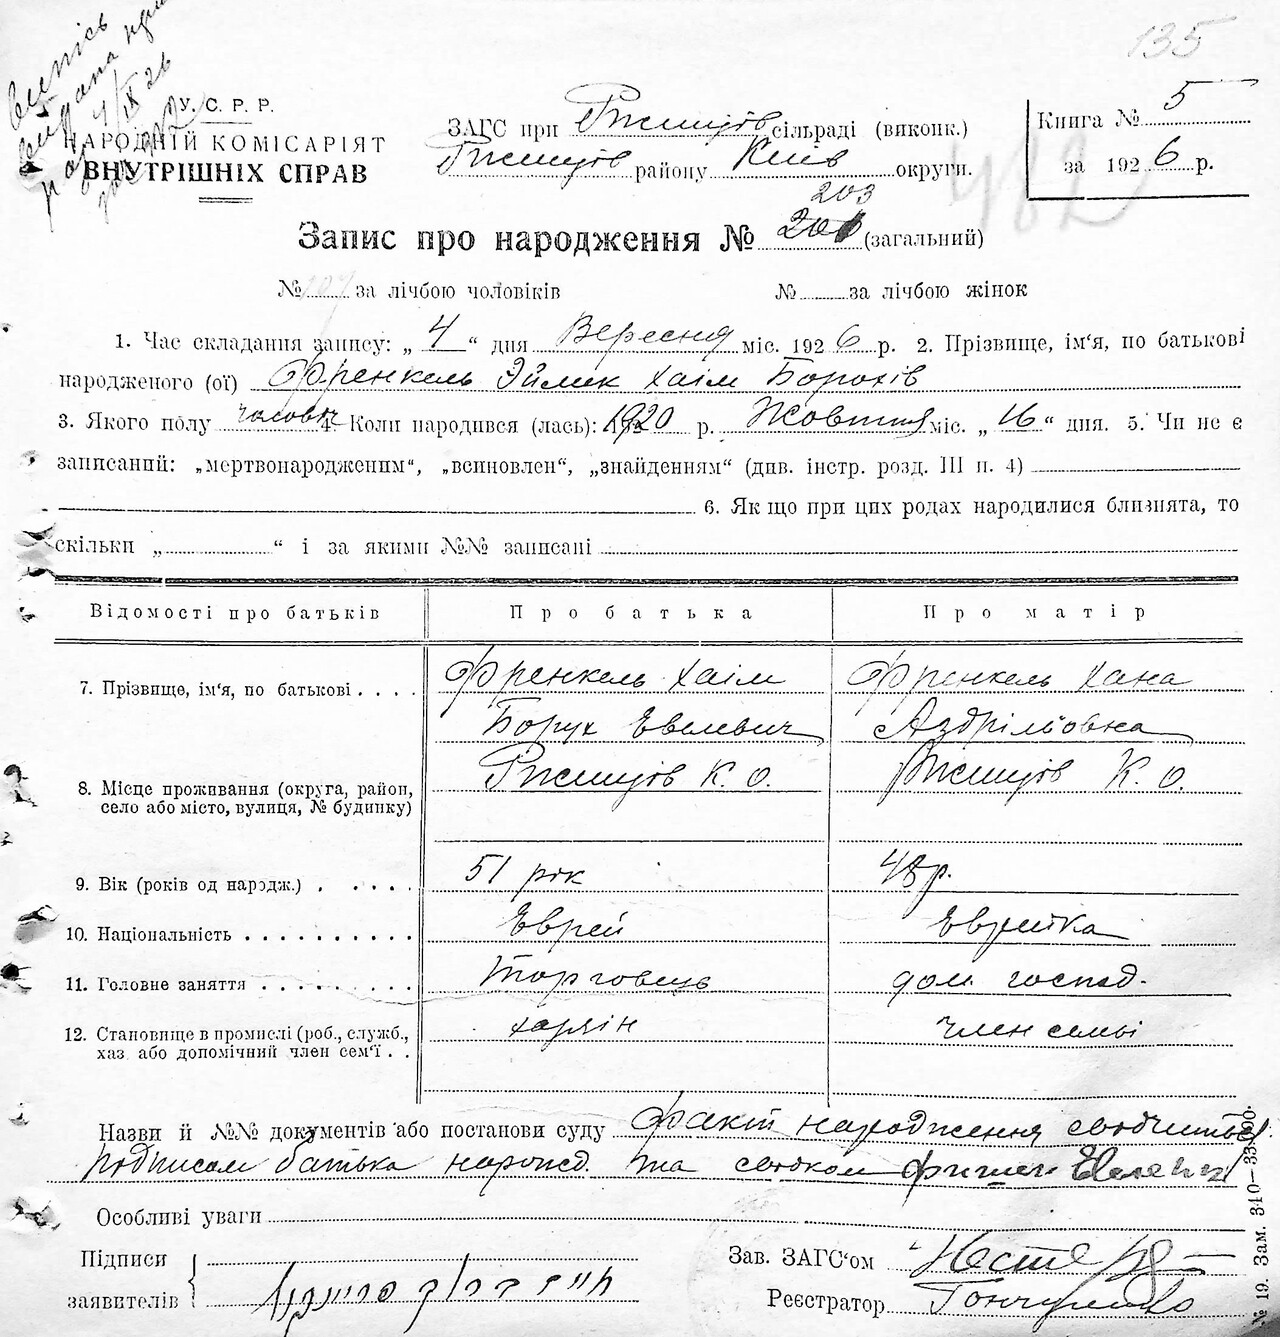 135
Випись
видана
4/IX 26
У. С. Р. Р.
НАРОДНІЙ КОМІСАРІЯТ
ВНУТРІШНІХ СПРАВ
ЗАГС при Ржищів сільраді (виконк.)
Ржищів району Київ округи.
Книга № 5
за 1926 р.
482
203
Запис про народження № 201 (загальний)
№ 107 за лічбою чоловіків № за лічбою жінок
1. Час складання запису: „ 4 “ дня Вересня міс. 1926 р. 2. Прізвище, ім‘я, по батькові
народженого (ої) Френкель Эймик Хаім Борохів
3. Якого полу чоловіч 4. Коли народився (лась): 1920 р. Жовтня міс. „ 16 “ дня. 5. Чи не є
записаний: „мертвонародженим“, „всиновлен“, „знайденням“ (див. інстр. розд. III п. 4)
6. Як що при цих родах народилися близнята, то
скільки „ “ і за якими №№ записані
Відомості про батьків Про батька Про матір
7. Прізвище, ім‘я, по батькові . . . . Френкель Хаім Френкель Хана
Борух Евелевич Аздрільовна
8. Місце проживання (округа, район, Ржищів К. О. Ржищів К. О.
село або місто, вулиця, № будинку)
9. Вік (років од народж.) . . . . . 51 рік 48 р.
10. Національність . . . . . . . . . . Еврей Еврейка
11. Головне заняття . . . . . . . . . Торговець дом. господ.
12. Становище в промислі (роб., служб., хазяїн член семьі
хаз. або допомічний член сем‘ї . .
Назви й №№ документів або постанови суду Факт народження сводчиться
подписом батька народ. та сводком
Особливі уваги
Підписи
заявителів
חיים ברוך פרענקעל
Зав. ЗАГС‘ом
Реєстратор Гончаренко
№ 19. Зам. 310—33.000.